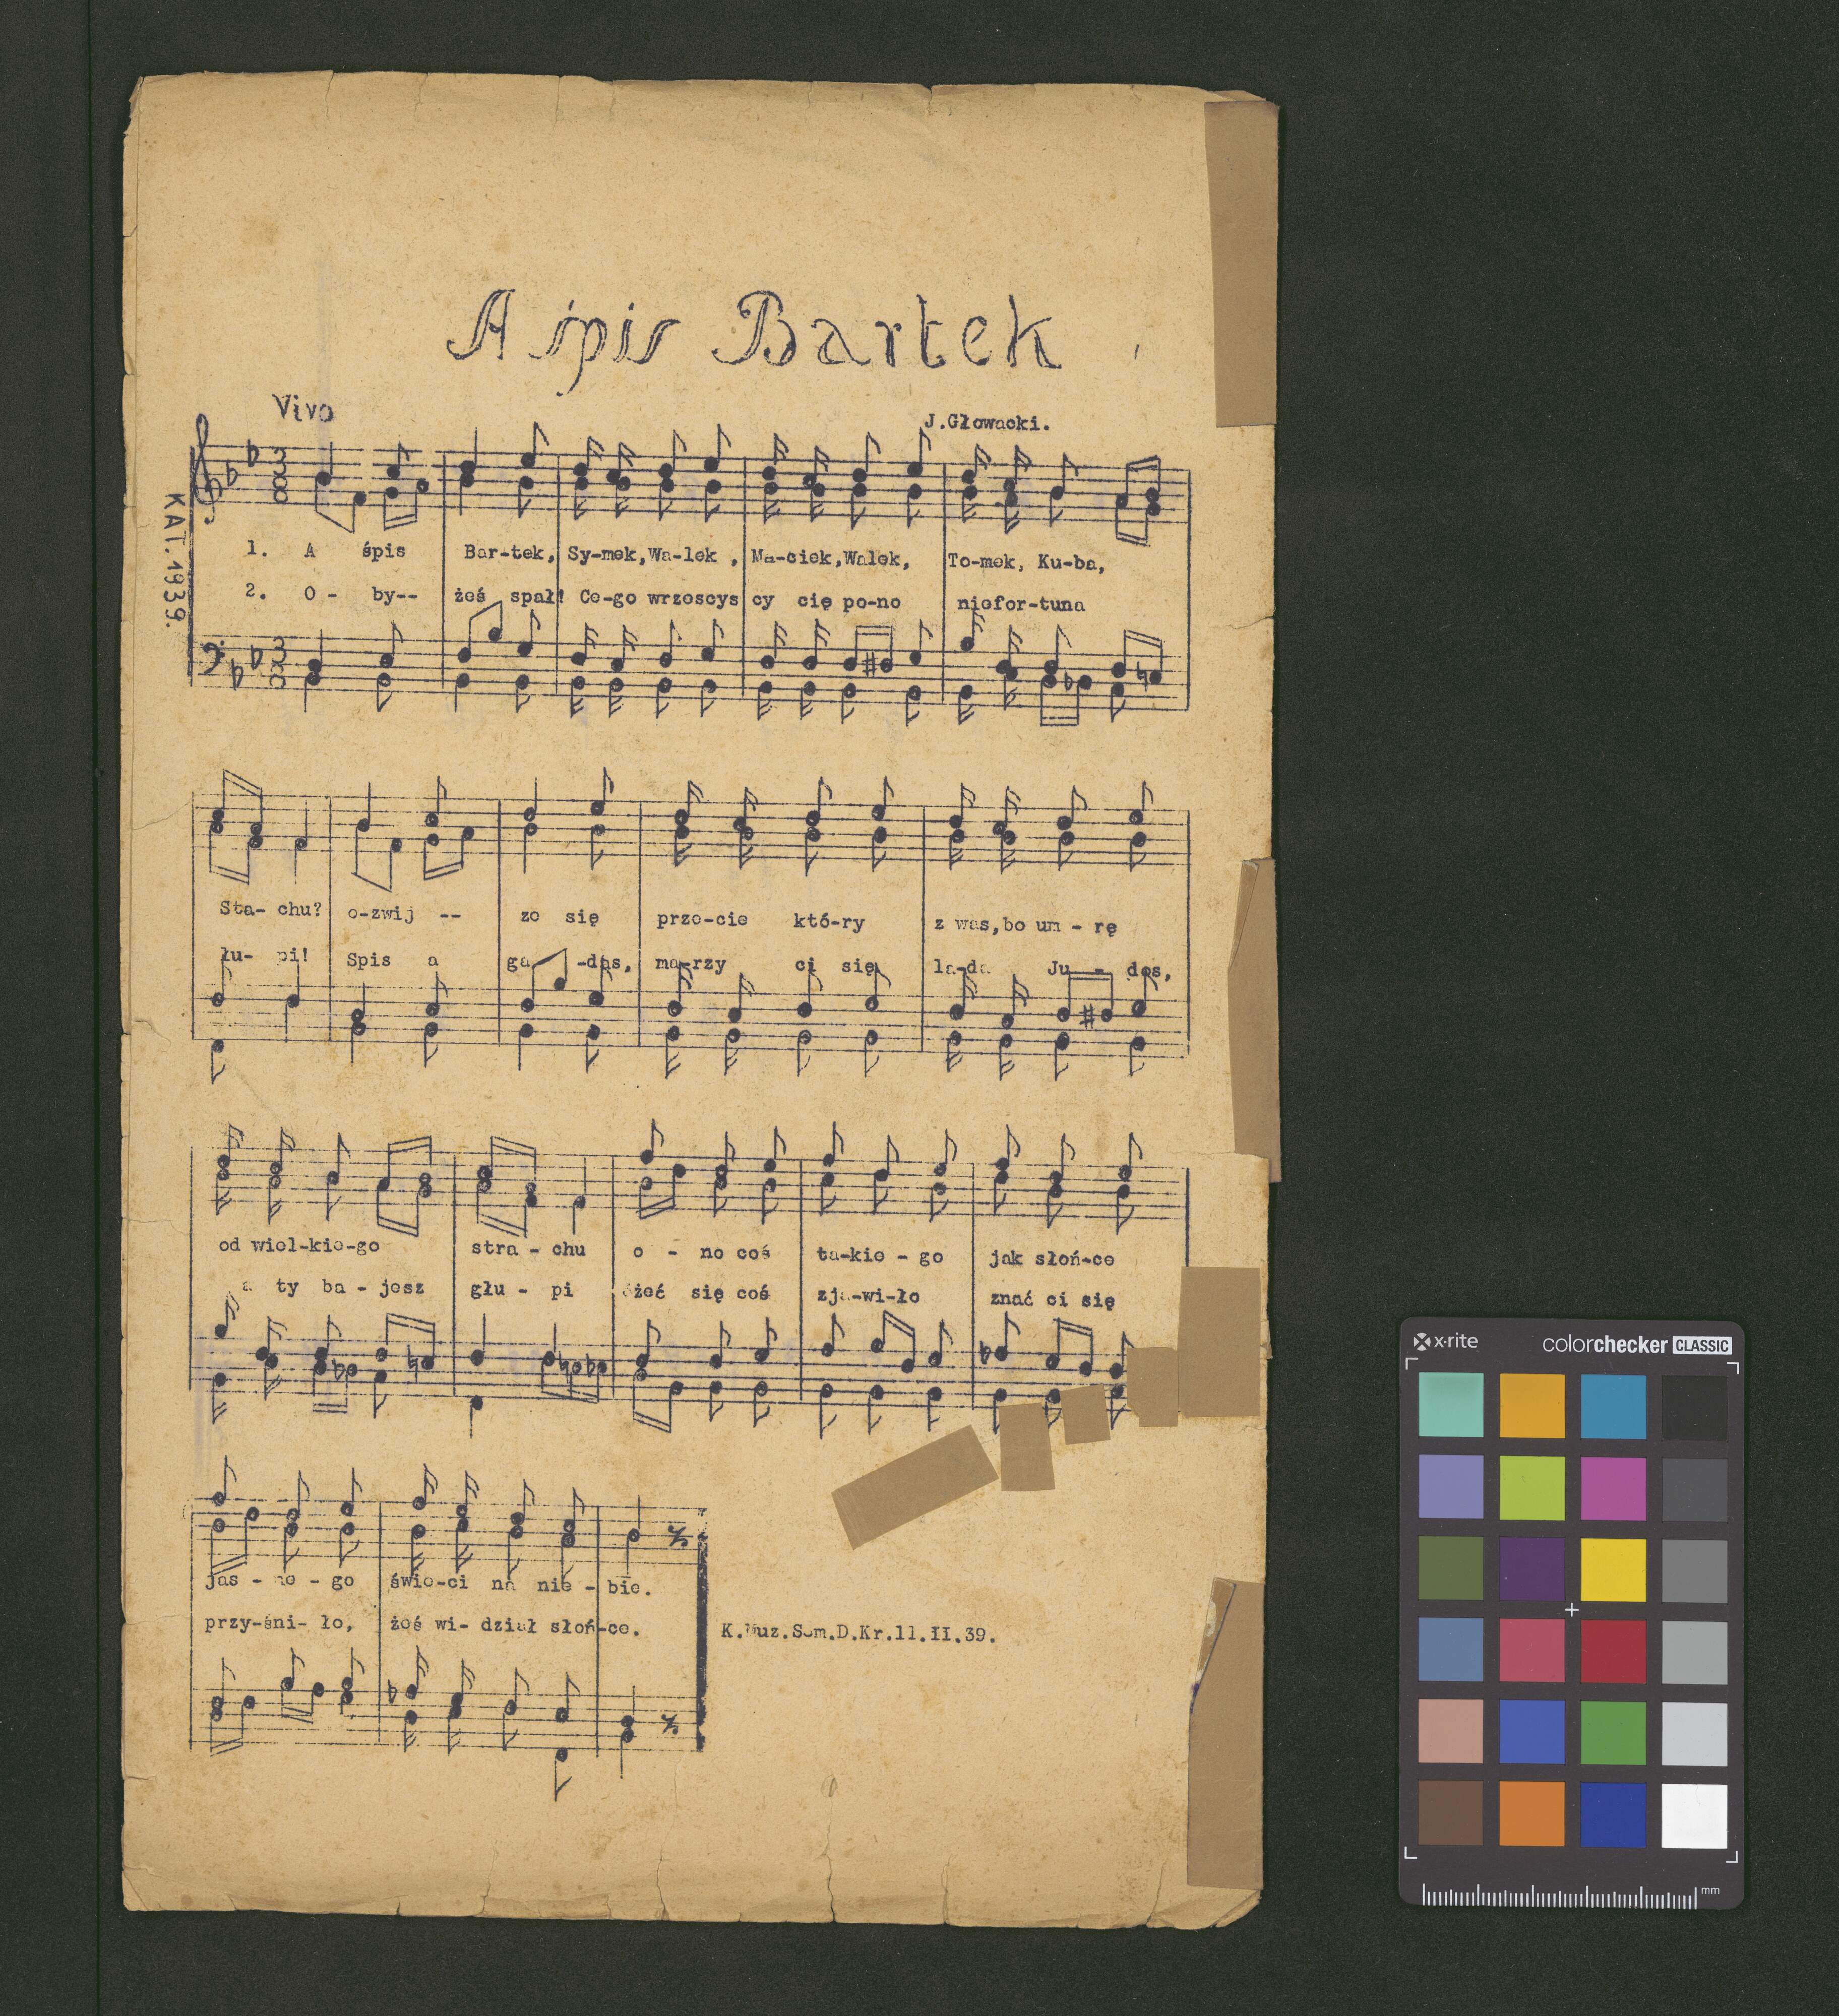 A śpis Bartek
Vivo
J.Głowacki.
KAT.1939.
1. A śpis Bar-tek, Sy-mek,Wa-lek , Ma-ciek,Walek, To-mek, Ku-ba,
2. O - by-- żeś spał! Ce-go wrzescys cy cię po-no niefor-tuna
Sta- chu? o-zwij -- ze się prze-cie któ-ry z was,bo um - rę
łu- pi! Spis a ga -das, ma-rzy ci się la-da Ju - dos,
od wiel-kie-go stra - chu o - no coś ta-kie - go jak słoń-ce
a ty ba - jesz głu - pi żeć się coś zja-wi-ło znać ci się
jas - ne - go świe-ci na nie - bie.
przy-śni- ło, żeś wi- dział słoń-ce.
K.Muz.Sem.D.Kr.11.II.39.
x·rite colorchecker CLASSIC
mm